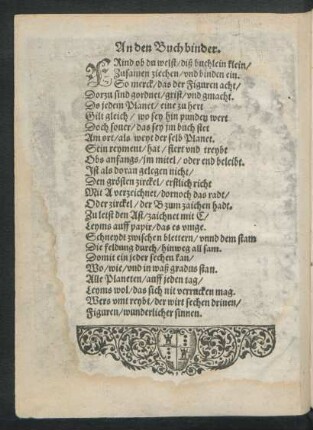 An den Buchbinder.
FRind ob du welst/diß buchlein klein/
Zusamen ziechen/vnd binden ein.
So merck/das der Figuren acht/
Dorzu sind gordnet/grist/vnd gmacht.
Do jedem Planet/eine zu hert
Gilt gleich/wo sey hin pundey wert
Doch souer/das sey jm buch stet
Am ort/als weyt der selb Planet.
Sein reyment/hat/fiert vnd treybt
Obs anfangs/jm mitel/oder end beleibt.
Ist als doran gelegen nicht/
Den grösten zirckel/erstlich richt
Mit A verzeichnet/dornoch das radt/
Oder zirckel/der B zum zaichen hadt.
Zu letst den Ast/zaichnet mit C/
Leyms auff papir/das es vmge.
Schneydt zwischen blettern/vnnd dem stam
Die feldung durch/hinweg all sam.
Domit ein jeder sechen kan/
Wo/wie/vnd in waß gradus stan.
Alle Planeten/auff jeden tag/
Leyms wol/das sich nit verrucken mag.
Wers vmt reybt/der wirt sechen drinen/
Figuren/wunderlicher sinnen.